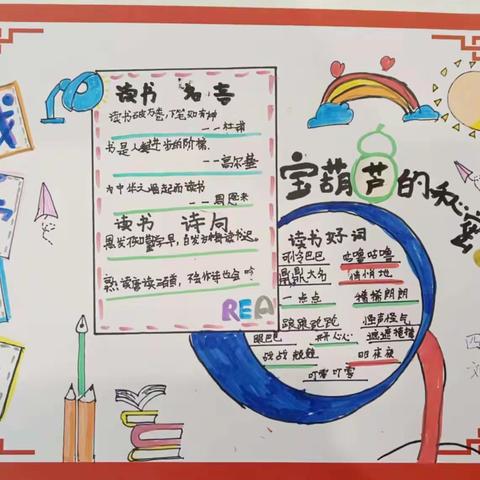 我
读书 名言
读书破万卷,下笔如有神
——杜甫
书是人类进步的阶梯.
——高尔基
为中华之崛起而读书
——周恩来
读书 诗句
黑发不知勤学早,白发方悔读书迟.
熟读唐诗三百首,不会作诗也会吟
REA
宝葫芦的秘密
读书好词
可怜巴巴 咕噜咕噜
鼎鼎大名 悄悄地
一点点
踉踉跄跄 怪声怪气
眼巴巴 开心心 遮遮掩掩
战战兢兢
叮零叮零
四